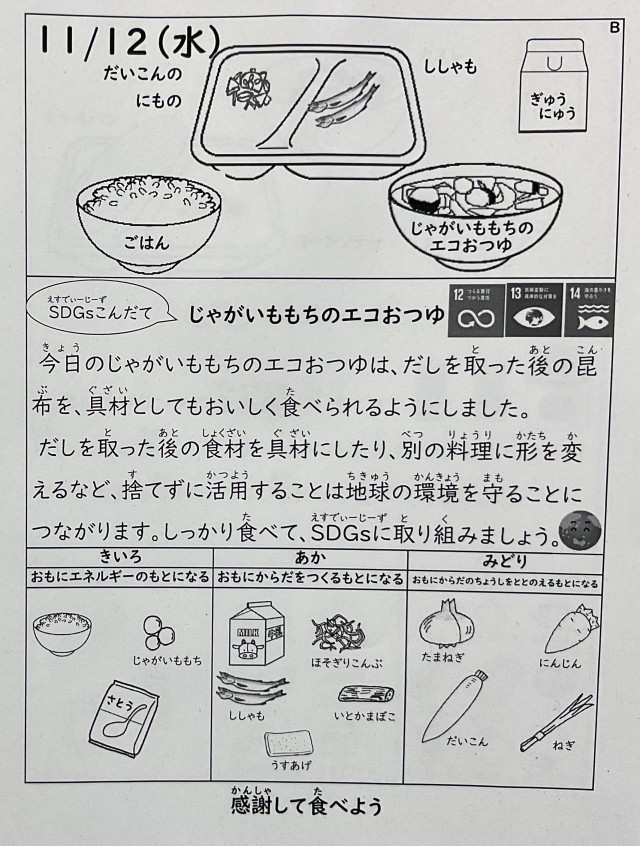 11/12(水)
B
だいこんの
にもの
ししゃも
ぎゅう
にゅう
ごはん
じゃがいももちの
エコおつゆ
えすでぃーじーず
SDGsこんだて
じゃがいももちのエコおつゆ
12 つくる責任 つかう責任
13 気候変動に 具体的な対策を
14 海の豊かさを 守ろう
きょう と あと こん
今日のじゃがいももちのエコおつゆは、だしを取った後の昆
ぶ ぐざい た
布を、具材としてもおいしく食べられるようにしました。
と あと しょくざい ぐざい べつ りょうり かたち か
だしを取った後の食材を具材にしたり、別の料理に形を変
す かつよう ちきゅう かんきょう まも
えるなど、捨てずに活用することは地球の環境を守ることに
た えすでぃーじーず と く
つながります。しっかり食べて、SDGsに取り組みましょう。
きいろ
あか
みどり
おもにエネルギーのもとになる
おもにからだをつくるもとになる
おもにからだのちょうしをととのえるもとになる
じゃがいももち
さとう
MILK
牛乳
ほそぎりこんぶ
ししゃも
いとかまぼこ
うすあげ
たまねぎ
にんじん
だいこん
ねぎ
かんしゃ た
感謝して食べよう